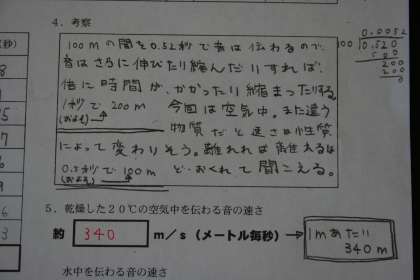 秒)
4. 考察
100mの間を0.52秒で音は伝わるので、
音はさらに伸びたり縮んだりすれば、
倍に時間が、かかったり縮まったりする。
1秒で200m 今回は空気中。また違う
(およそ)
物質だと速さは性質
によって変わりそう。離れれば
0.5秒で100m と、おくれて聞こえる。
(およそ)
0.0052
100 0.520
500
200
200
0
5. 乾燥した20℃の空気中を伝わる音の速さ
約 340 m/s(メートル毎秒)→ 1mあたり
340m
水中を伝わる音の速さ